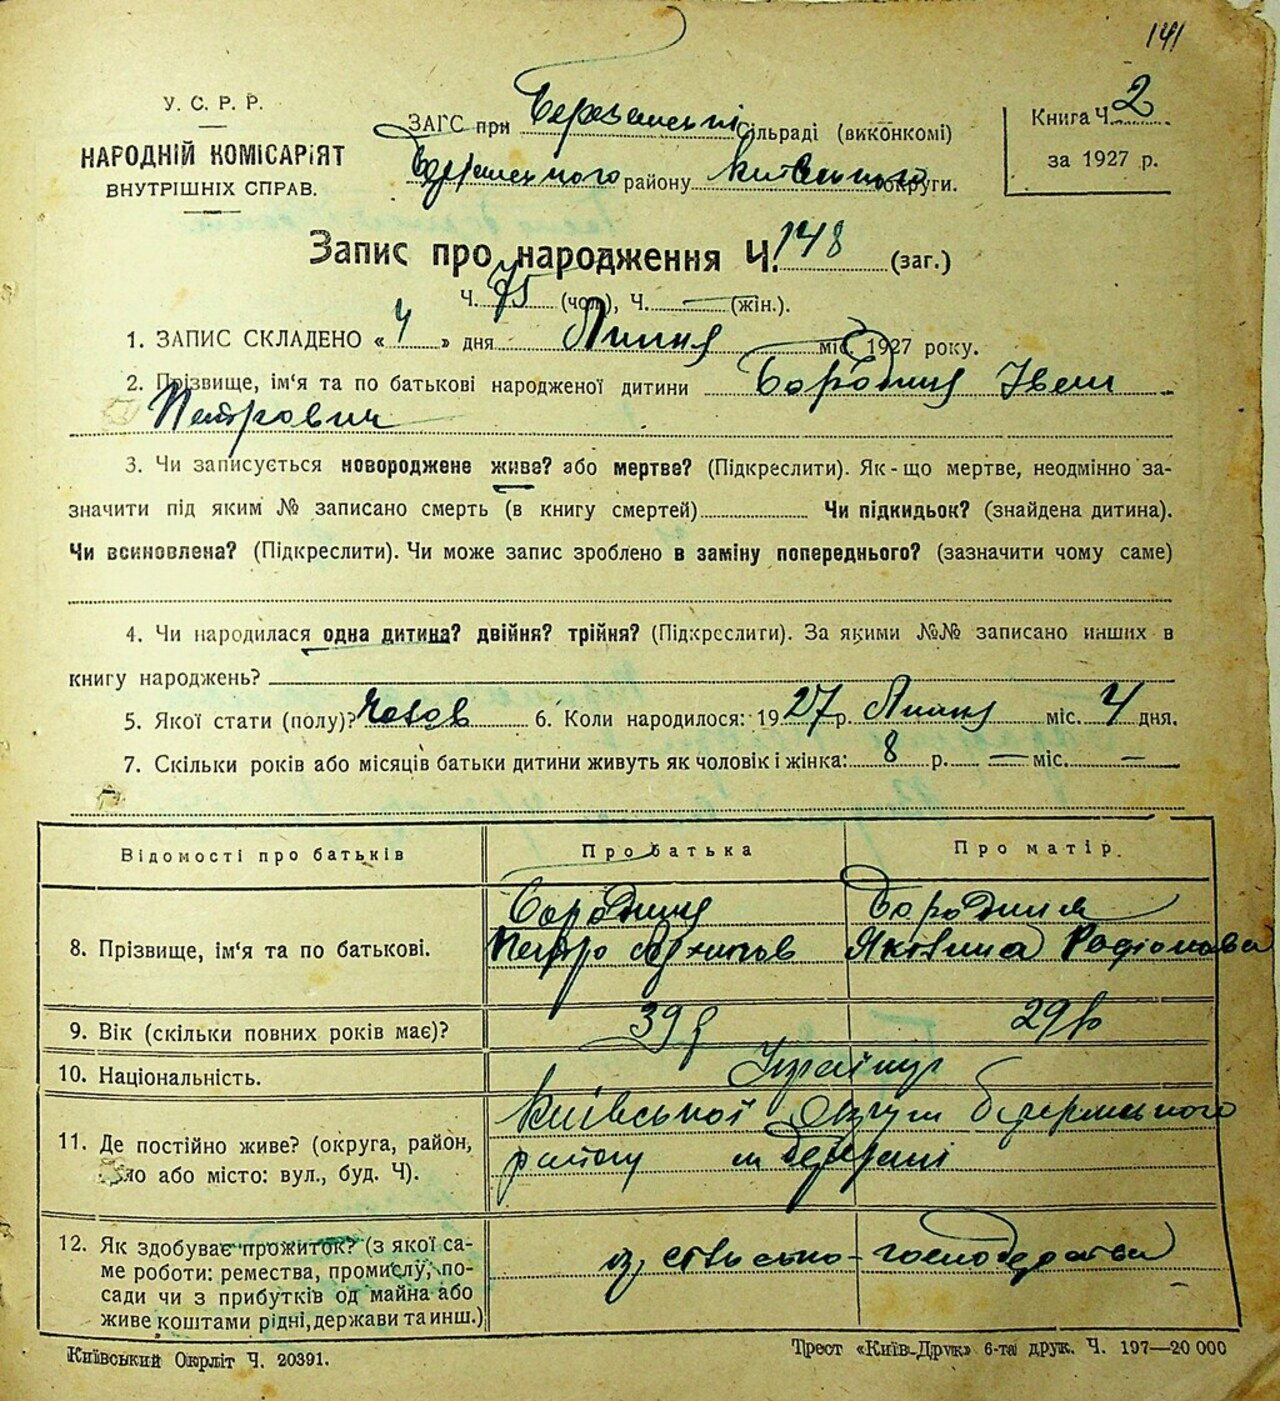 141
У. С. Р. Р.
НАРОДНІЙ КОМІСАРІЯТ
ВНУТРІШНІХ СПРАВ.
ЗАГС при Березанській сільраді (виконкомі)
району Київського округи.
Книга Ч. 2
за 1927 р.
Запис про народження Ч. 148 (заг.)
Ч. 75 (чол.), Ч. — (жін.).
1. ЗАПИС СКЛАДЕНО « 4 » дня Липня міс. 1927 року.
2. Прізвище, ім'я та по батькові народженої дитини Бородиня Іван
Петрович
3. Чи записується новороджене живе? або мертве? (Підкреслити). Як-що мертве, неодмінно за-
значити під яким № записано смерть (в книгу смертей) Чи підкидьок? (знайдена дитина).
Чи всиновлена? (Підкреслити). Чи може запис зроблено в заміну попереднього? (зазначити чому саме)
4. Чи народилася одна дитина? двійня? трійня? (Підкреслити). За якими №№ записано инших в
книгу народжень?
5. Якої стати (полу)? чолов 6. Коли народилося: 1927 р. Липня міс. 4 дня.
7. Скільки років або місяців батьки дитини живуть як чоловік і жінка: 8 р. — міс. —
Відомості про батьків Про батька Про матір.
Бородиня Бородиня
8. Прізвище, ім'я та по батькові. Петро Архипов Яківина Родіонова
9. Вік (скільки повних років має)? 39 р 29 р
10. Національність. Українці
Київської округи
11. Де постійно живе? (округа, район, району м Березані
село або місто: вул., буд. Ч).
12. Як здобуває прожиток? (з якої са- із сільсько-господарства
ме роботи: ремества, промислу, по-
сади чи з прибутків од майна або
живе коштами рідні, держави та инш.)
Київський Окрліт Ч. 20391.
Трест «Київ-Друк» 6-та друк. Ч. 197—20 000